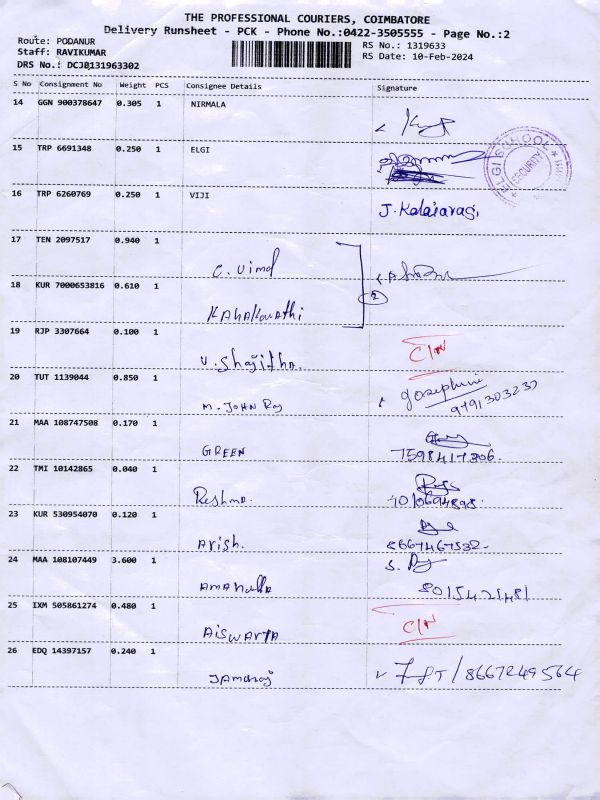 THE PROFESSIONAL COURIERS, COIMBATORE
Delivery Runsheet - PCK - Phone No.:0422-3505555 - Page No.:2
Route: PODANUR
RS No.: 1319633
Staff: RAVIKUMAR
RS Date: 10-Feb-2024
DRS No.: DCJB131963302
S No Consignment No Weight PCS Consignee Details Signature
14 GGN 900378647 0.305 1 NIRMALA
15 TRP 6691348 0.250 1 ELGI
ELGI SCHOOL
SECURITY
16 TRP 6260769 0.250 1 VIJI
J. Kalaiarasi
17 TEN 2097517 0.940 1
C. Vimal
18 KUR 7000653816 0.610 1
2
19 RJP 3307664 0.100 1
V. Shajitha.
C/N
20 TUT 1139044 0.850 1
M. JOHN Raj
Josephine
21 MAA 108747508 0.170 1
GREEN
7598417306
22 TMI 10142865 0.040 1
Reshma.
23 KUR 530954070 0.120 1
Arish.
8667467532
24 MAA 108107449 3.600 1
S.
Amanulla
8015421481
25 IXM 505861274 0.480 1
AISWARYA
C/N
26 EDQ 14397157 0.240 1
8667249564